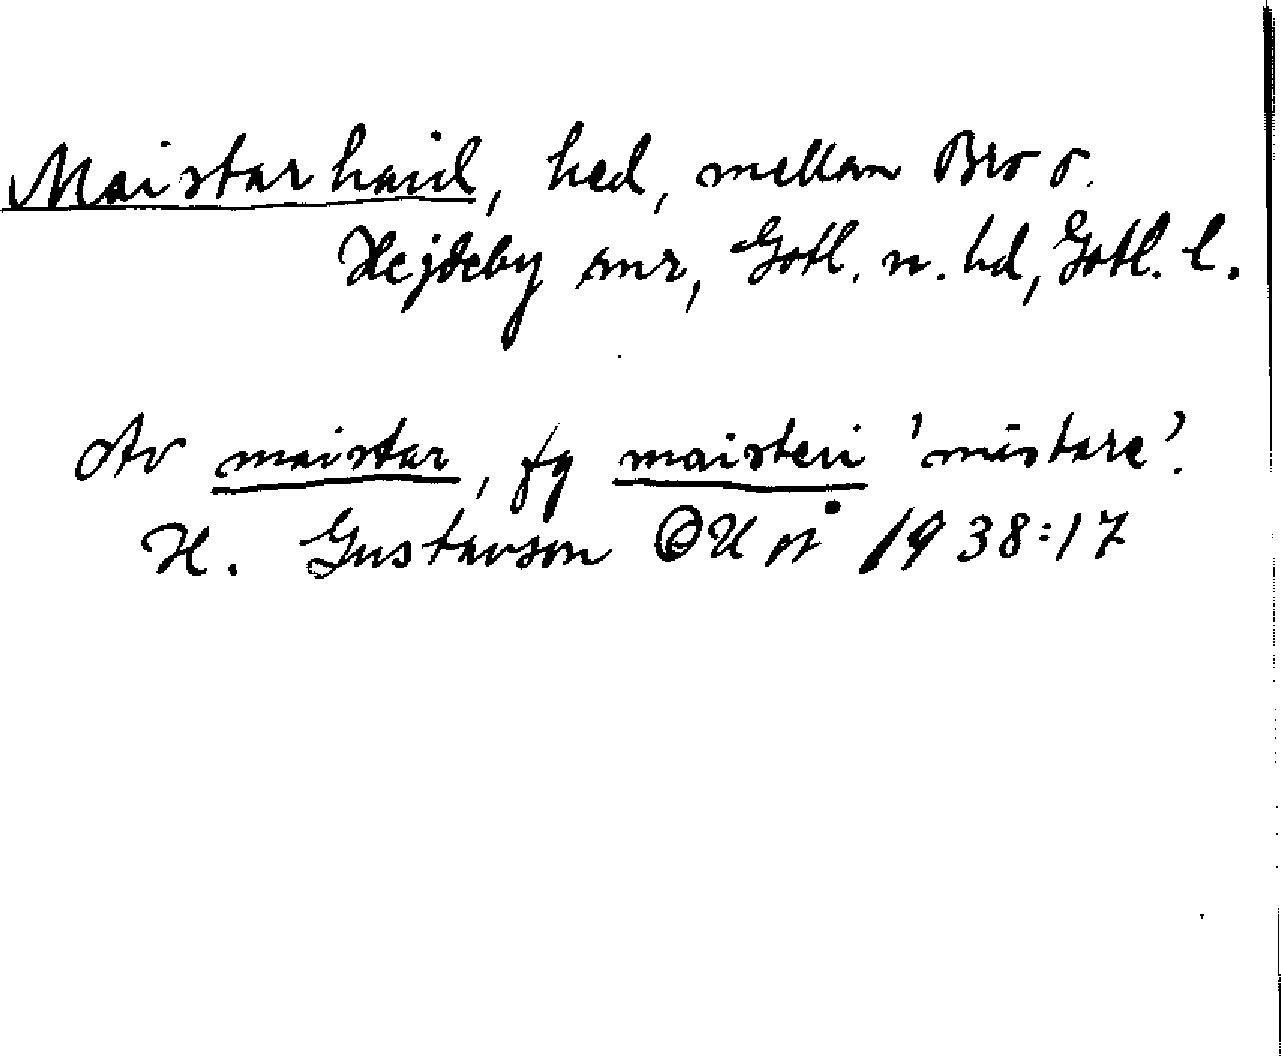 Maistarhaid, hed, mellan Bro o.
Hejdeby snr, Gotl. n. hd, Gotl. l.
Av maistar, fg maisteri 'mästare'.
H. Gustavson 1938:17